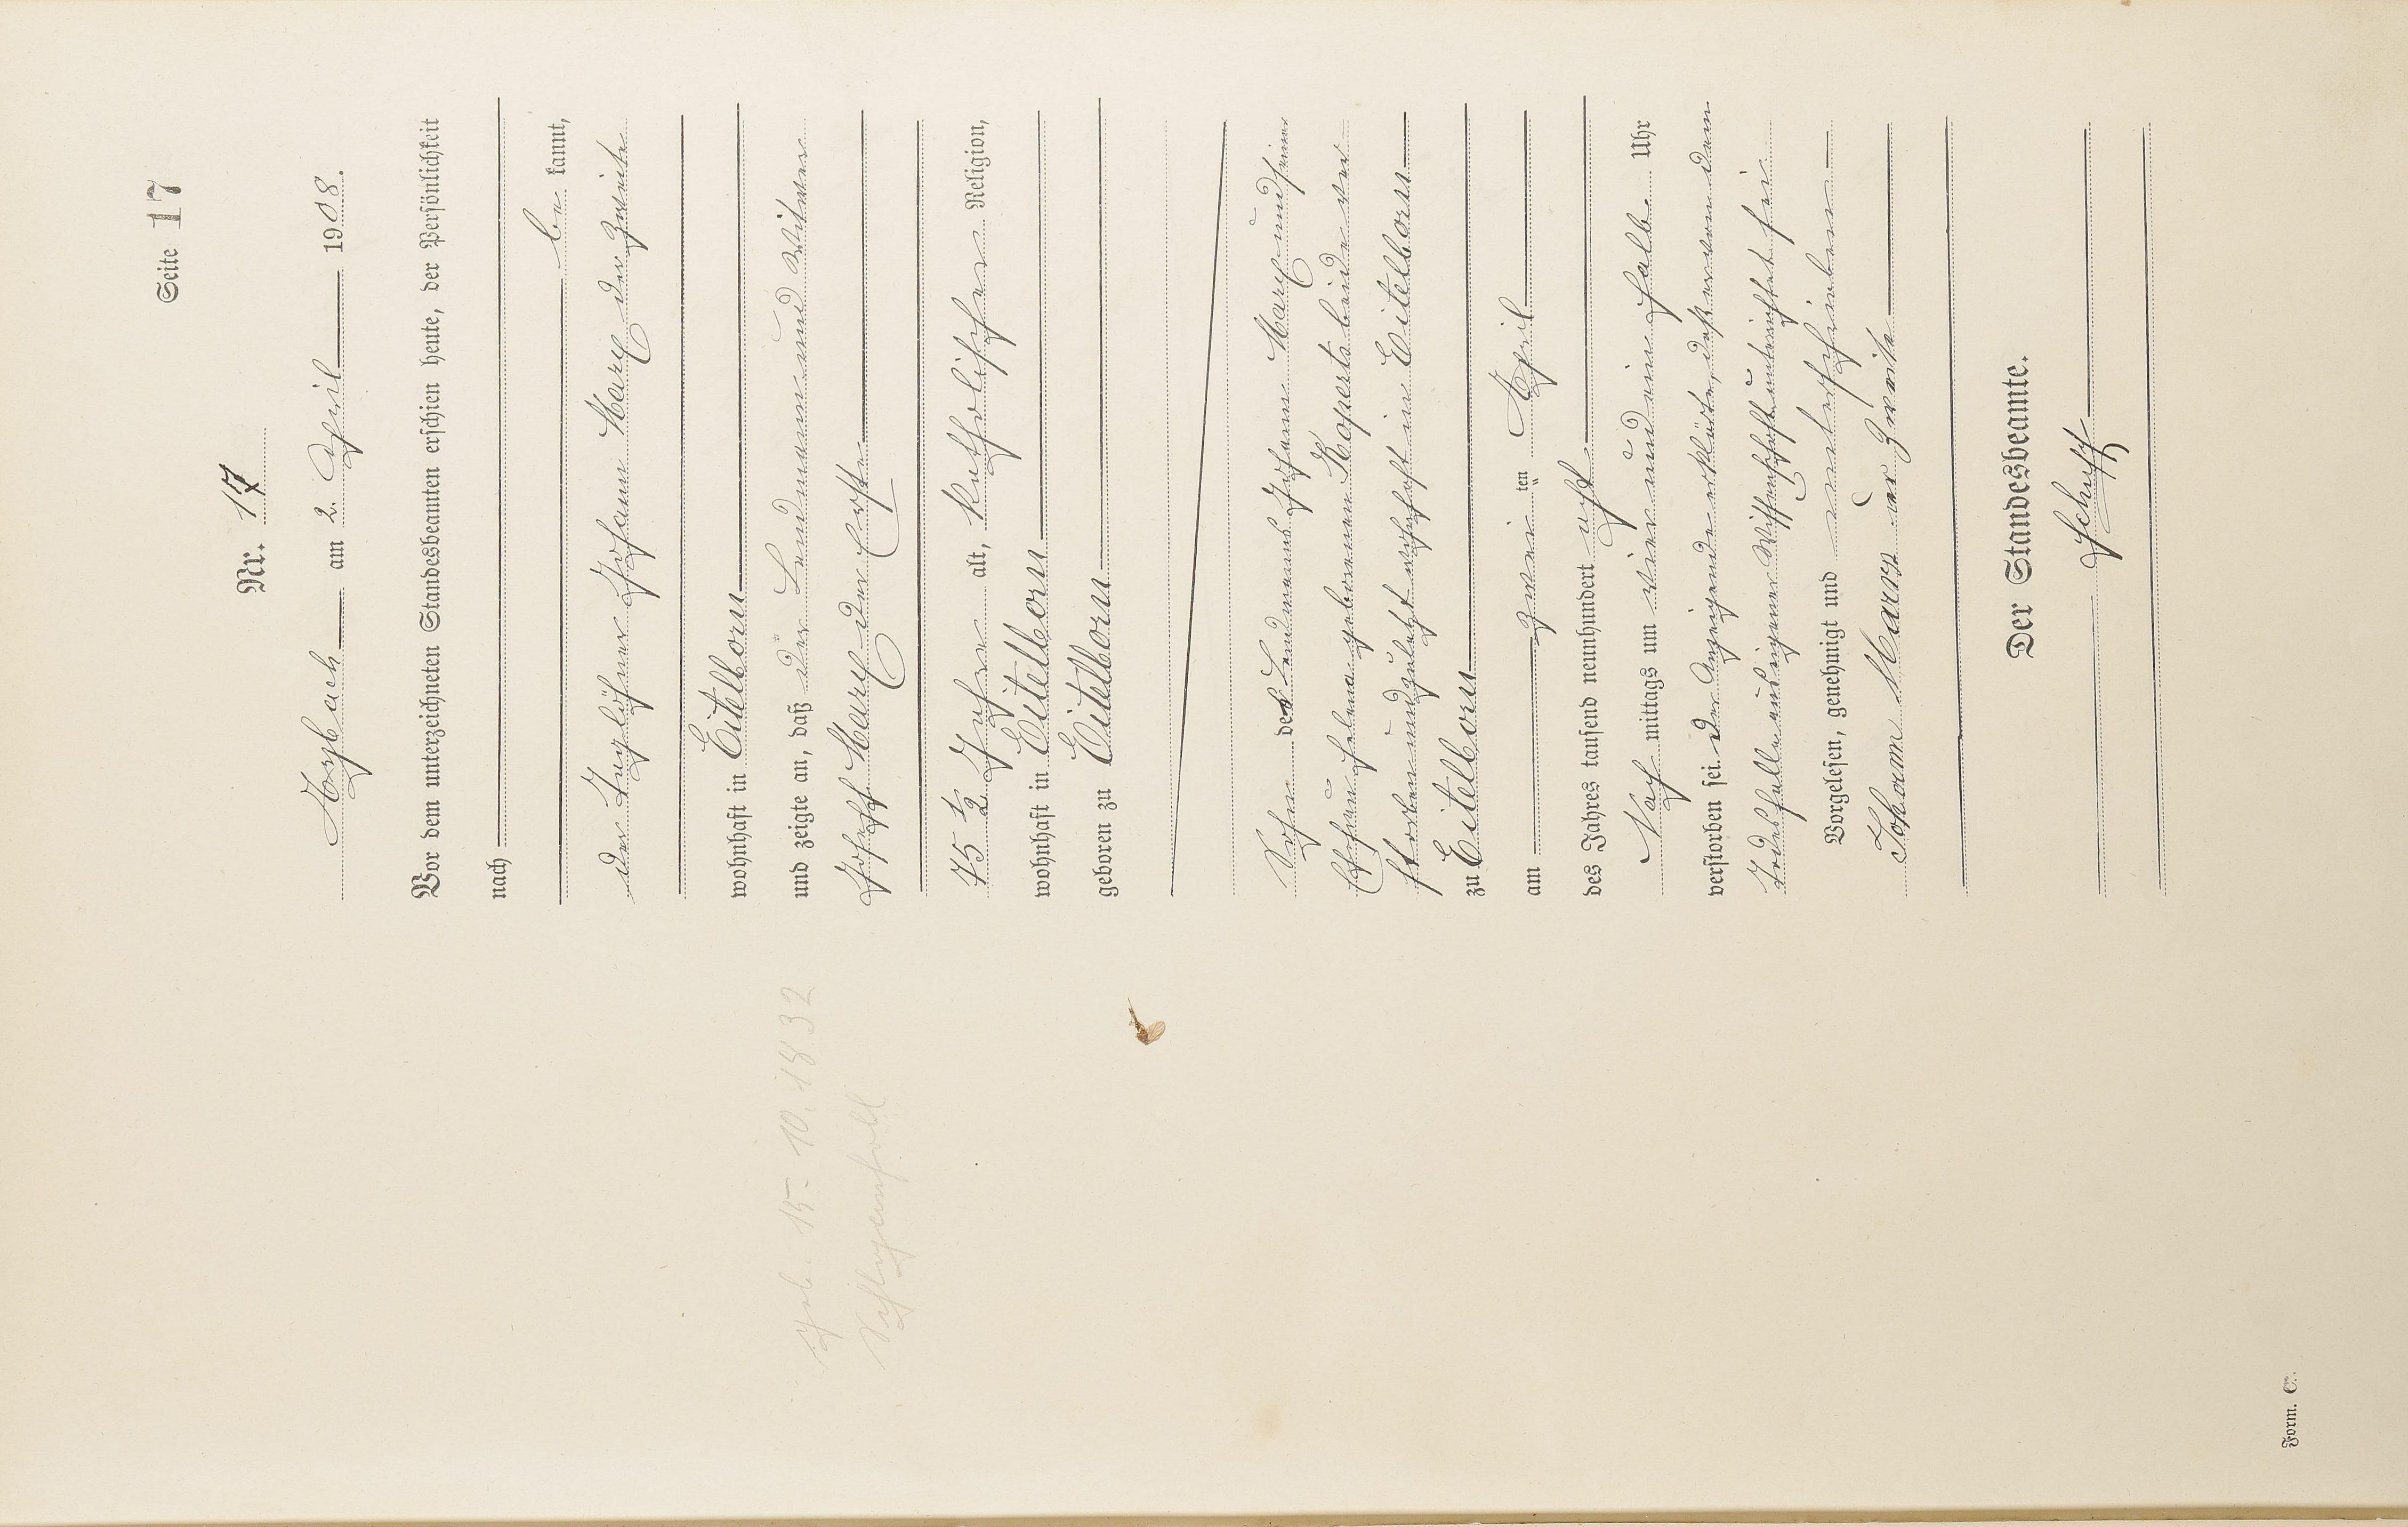 Seite 17
Nr. 17
Arzbach am 2. April 1908.
Vor dem unterzeichneten Standesbeamten erschien heute, der Persönlichkeit
nach
be kannt,
der Taglöhner Johann Marx der Zweite
wohnhaft in Eitelborn
und zeigte an, daß der Landmann und Witwer
Joseph Marx der Erste
75 1/2 Jahre alt, katholischer Religion,
wohnhaft in Eitelborn
geboren zu Eitelborn
Sohn des Landmanns Johann Marx und seiner
Ehefrau Helena geborenen Kopertz beide ver
storben und zuletzt wohnhaft in Eitelborn
zu Eitelborn
am zwei ten April
des Jahres tausend neunhundert acht
Nach mittags um vier und ein halb Uhr
verstorben sei. Der Anzeigende erklärte, daß er von dem
Todesfalle aus eigener Wissenschaft unterrichtet sei
Vorgelesen, genehmigt und unterschrieben
Johann Marx der Zweite
Der Standesbeamte.
Schupp
geb. 15. 10. 1832
Form. C.